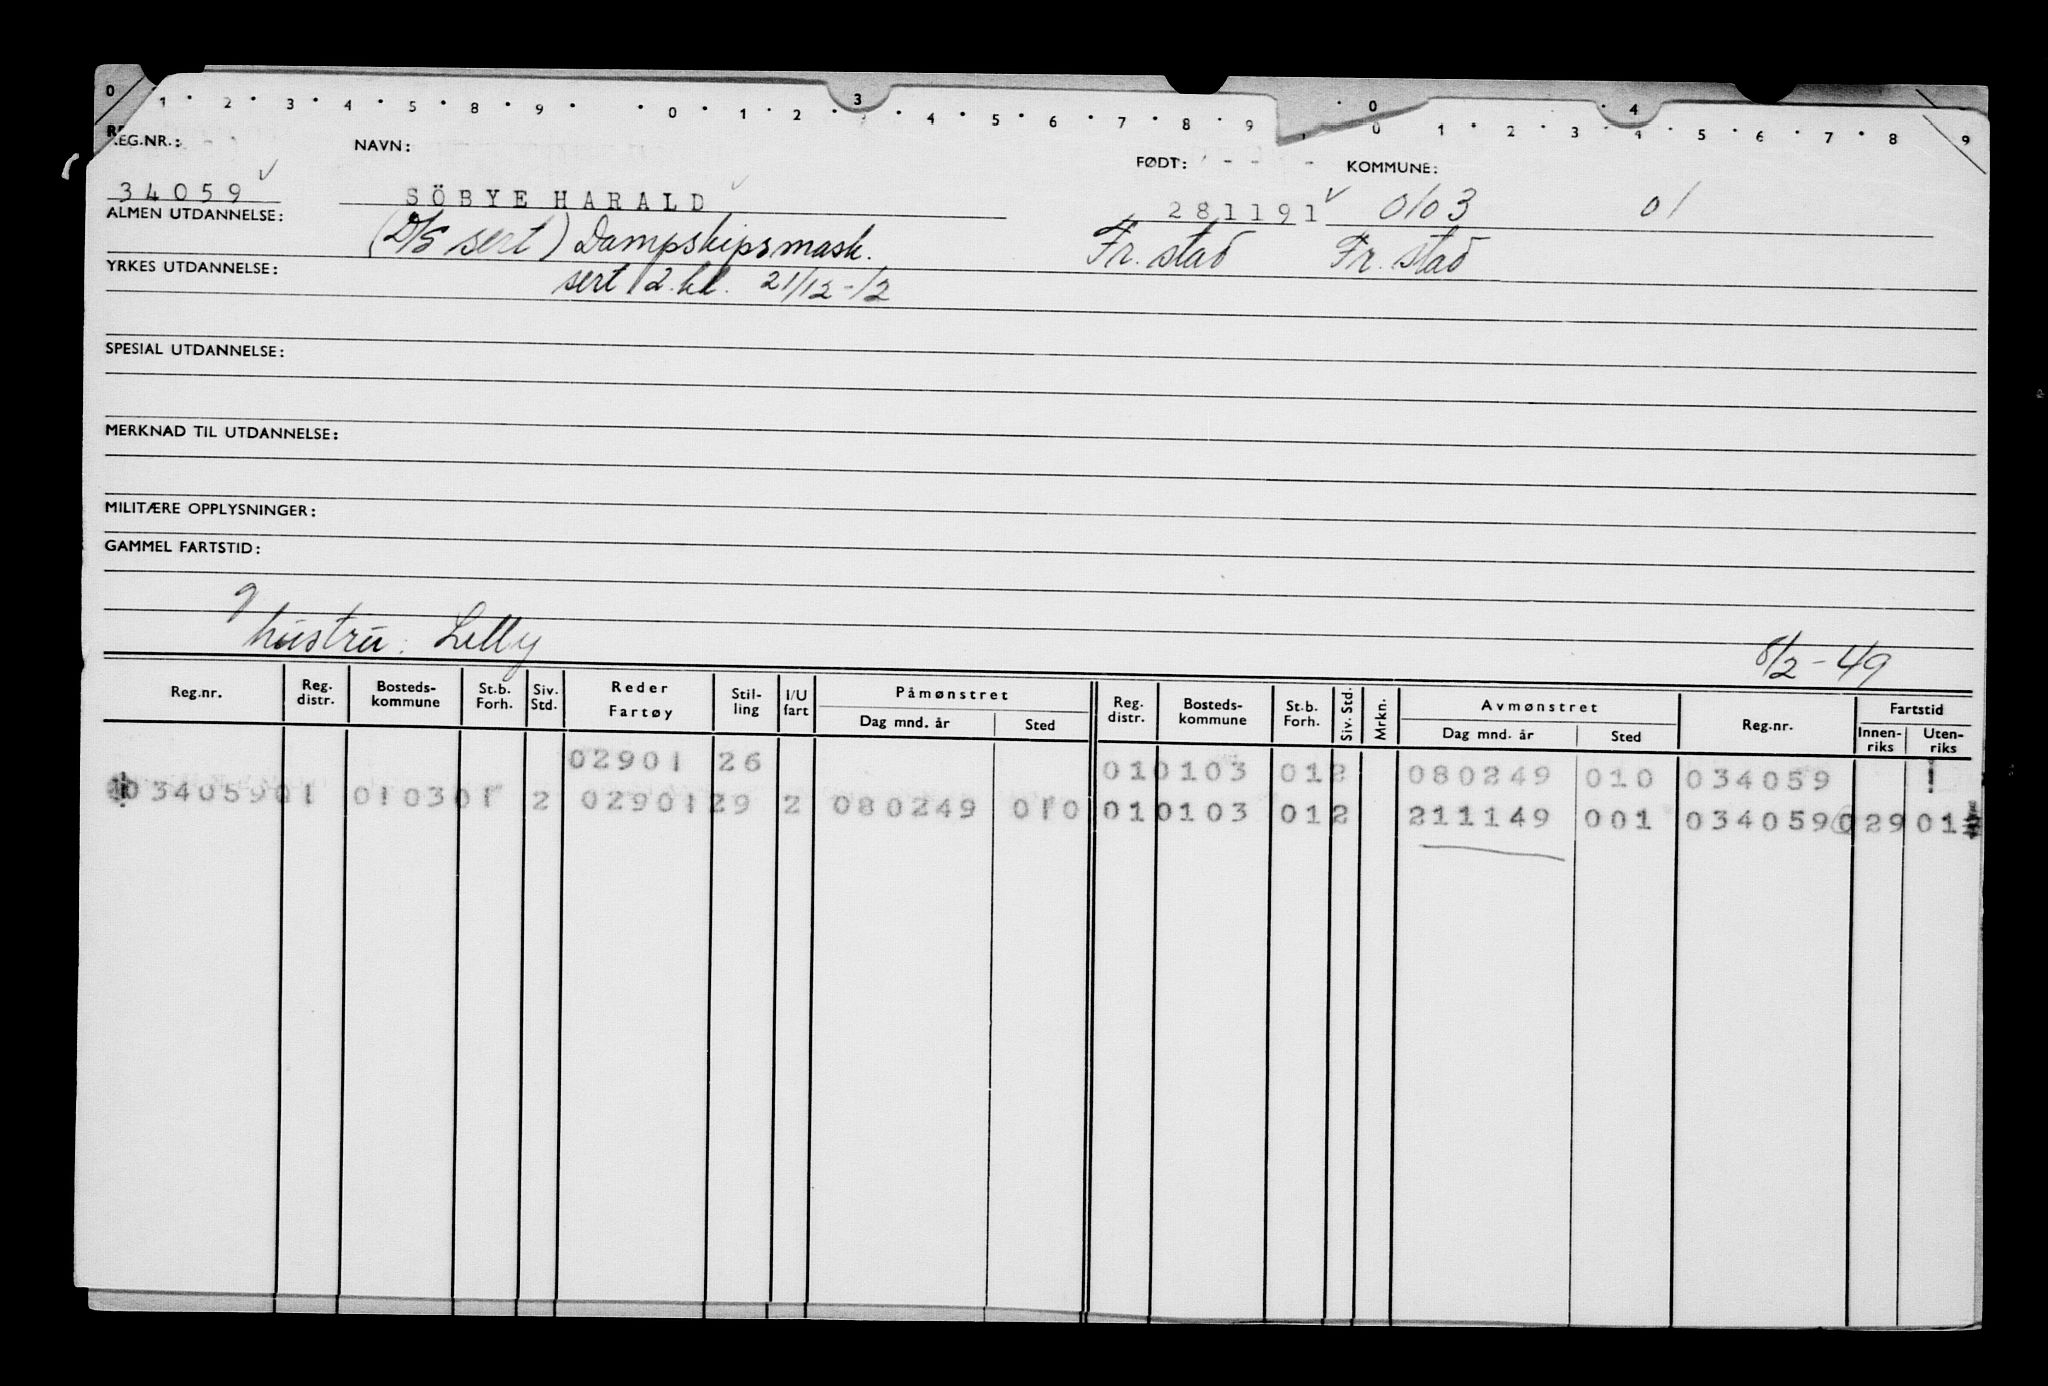 0 3 0 4
1 • 2 • 3 • 4 • 5 • 8 • 9 • • 0 • 1 • 2 • • 4 • 5 • 6 • 7 • 8 • 9 0 1 • 2 • 3 • 4 • 5 • 6 • 7 • 8 • 9
REG.NR.: NAVN: FØDT: KOMMUNE:
34059 SÖBYE HARALD 281191 0103 01
ALMEN UTDANNELSE: (D/S sert) Dampskipsmask. Fr.stad Fr.stad
YRKES UTDANNELSE: sert 2.kl. 21/12-12
SPESIAL UTDANNELSE:
MERKNAD TIL UTDANNELSE:
MILITÆRE OPPLYSNINGER:
GAMMEL FARTSTID:
g
hustru: Lelly 8/2-49
Reg.nr. Reg. distr. Bosteds- kommune St.b. Forh. Siv. Std. Reder Fartøy Stil- ling I/U fart Påmønstret Dag mnd. år Sted Reg. distr. Bosteds- kommune St.b. Forh. Siv. Std. Mrkn. Avmønstret Dag mnd. år Sted Reg.nr. Fartstid Innen- riks Uten- riks
02901 26 010103 012 080249 010 034059
03405901 010301 2 0290129 2 080249 010 010103 012 211149 001 034059 029 01